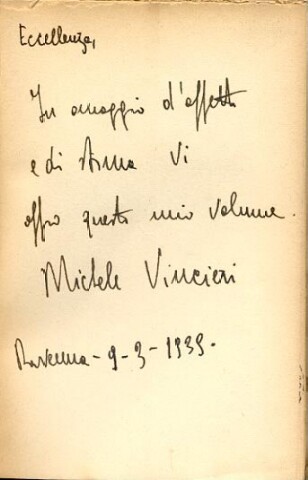 Eccellenza,
In omaggio d'affetto
e di stima Vi
offro questo mio volume.
Michele Vincieri
Ravenna - 9 - 3 - 1939.